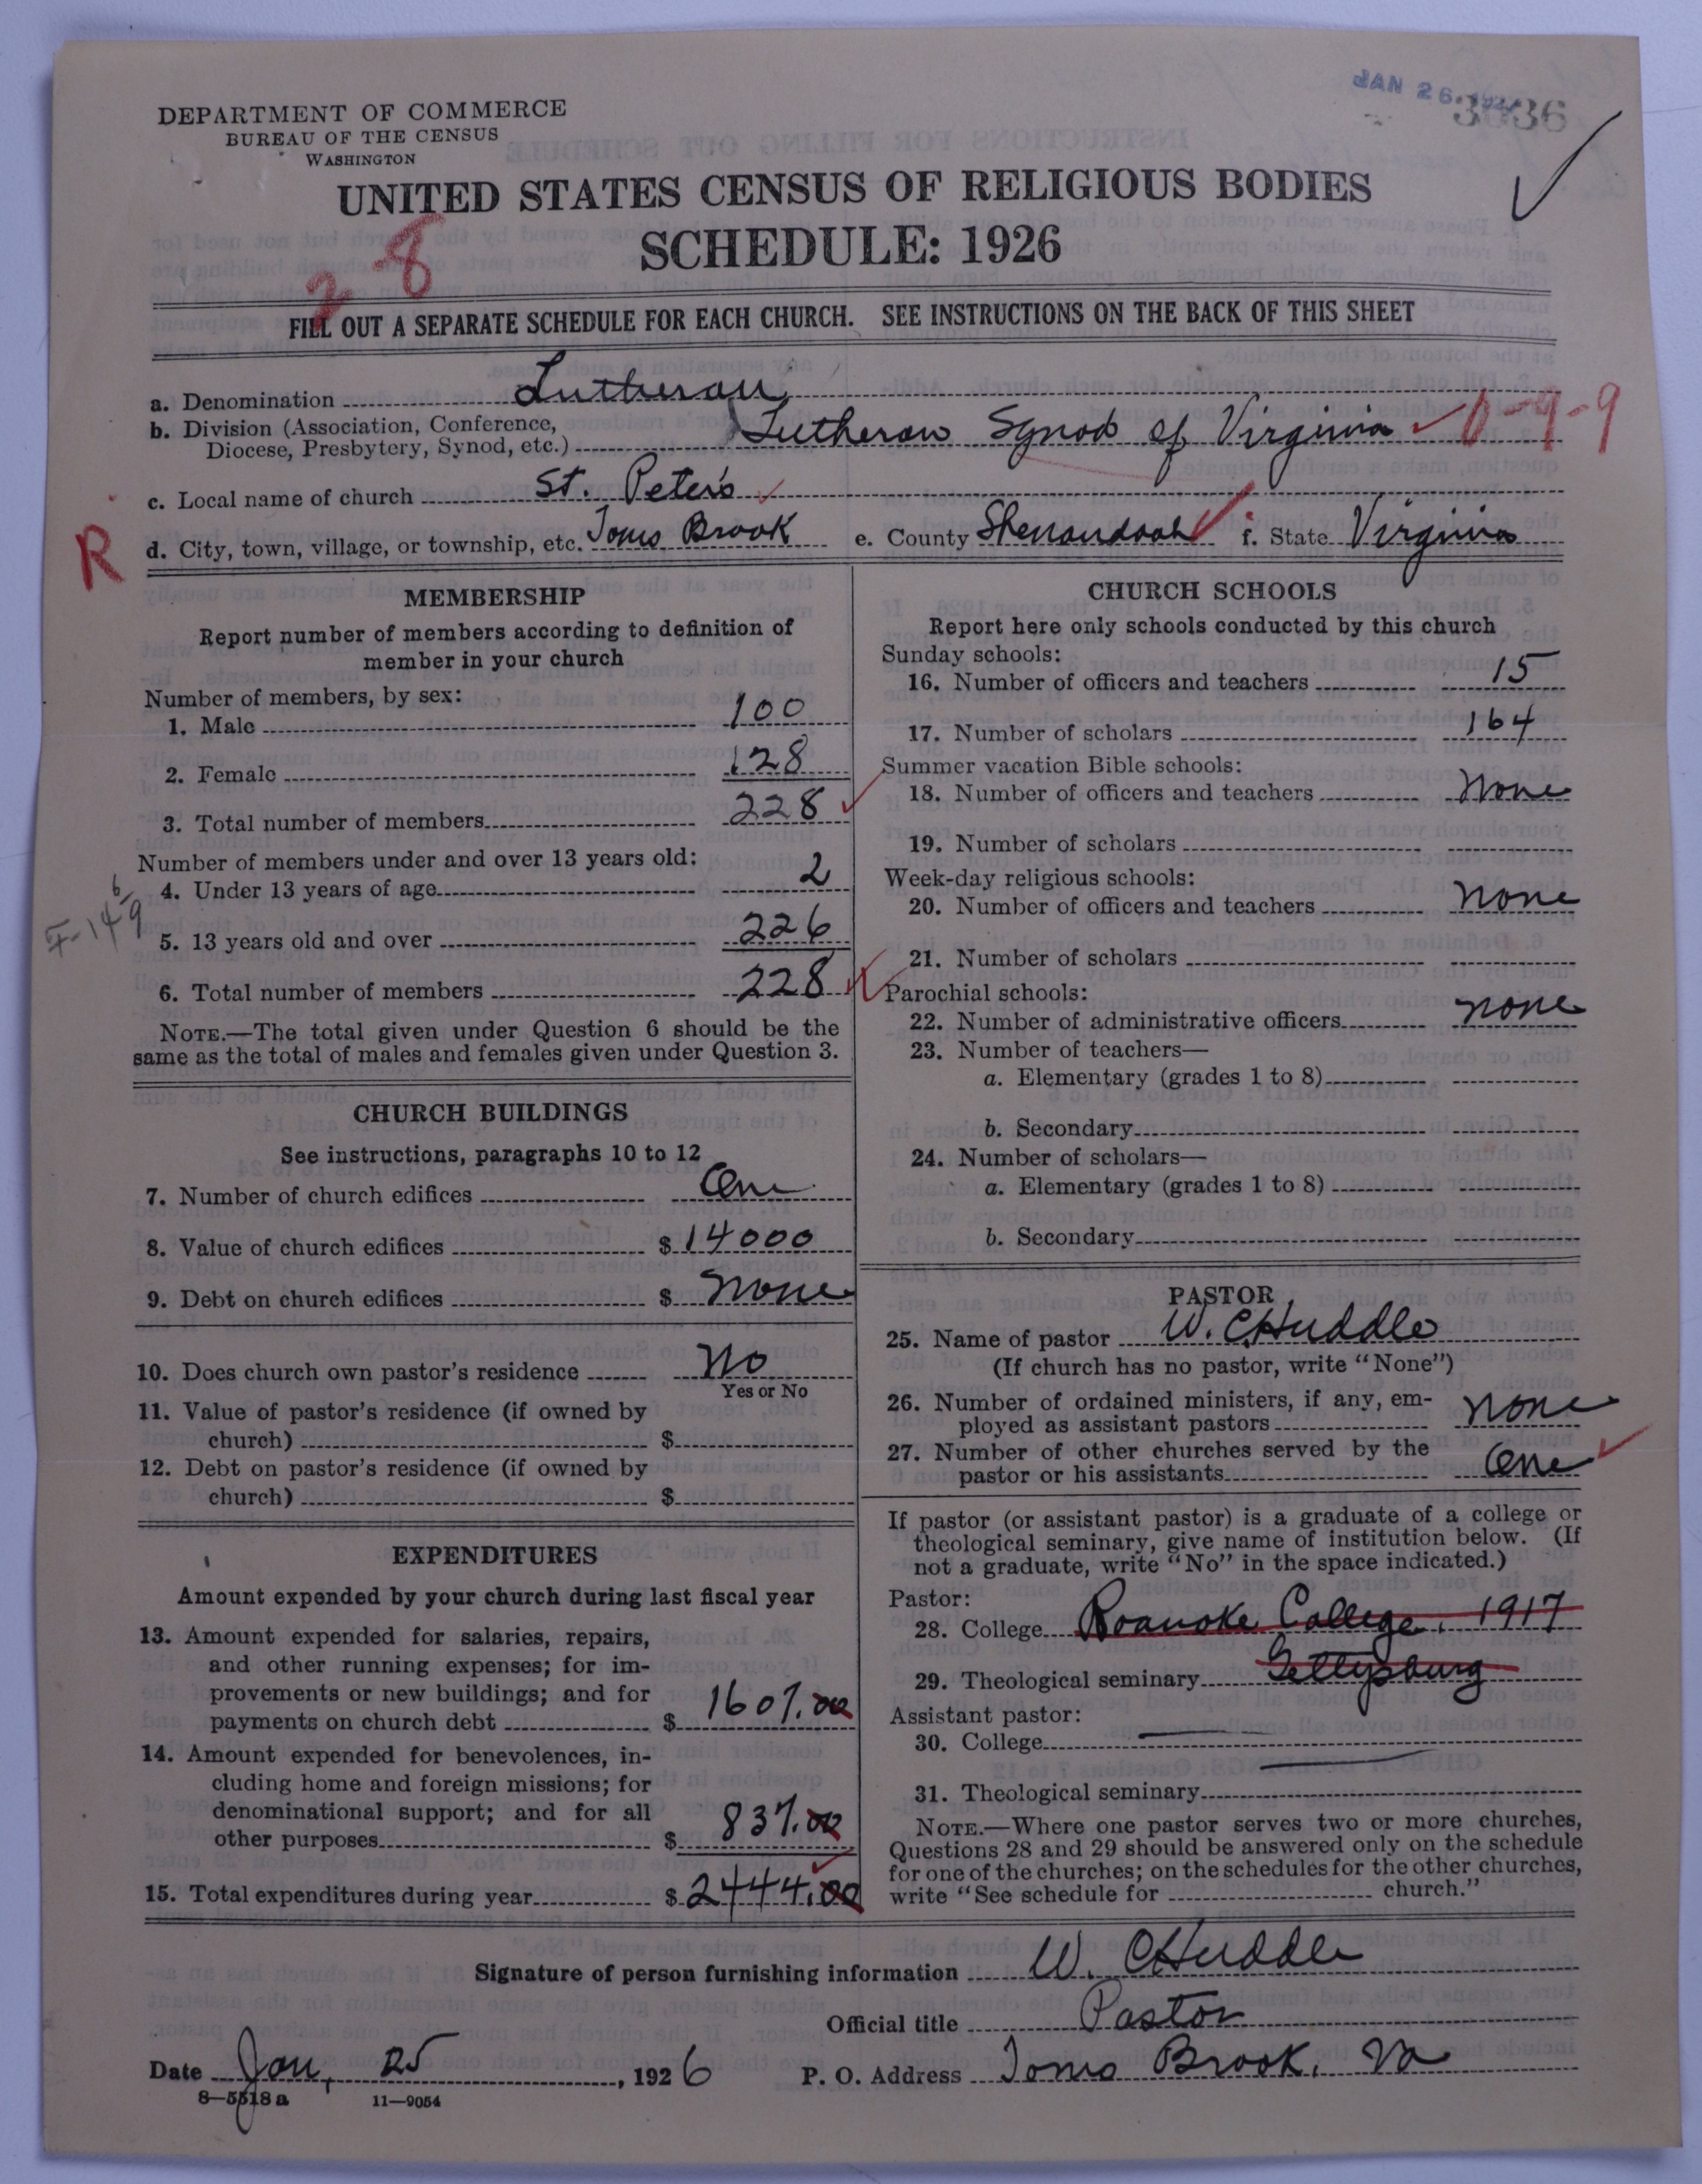 JAN 26 1927
3036
DEPARTMENT OF COMMERCE
BUREAU OF THE CENSUS
WASHINGTON
UNITED STATES CENSUS OF RELIGIOUS BODIES
SCHEDULE: 1926
2-8
FILL OUT A SEPARATE SCHEDULE FOR EACH CHURCH. SEE INSTRUCTIONS ON THE BACK OF THIS SHEET
a. Denomination Lutheran
b. Division (Association, Conference,
Diocese, Presbytery, Synod, etc.) Lutheran Synod of Virginia 0-9-9
c. Local name of church St. Peter's
R
d. City, town, village, or township, etc. Toms Brook e. County Shenandoah f. State Virginia
MEMBERSHIP
Report number of members according to definition of
member in your church
Number of members, by sex:
1. Male 100
2. Female 128
3. Total number of members 228
Number of members under and over 13 years old:
4. Under 13 years of age 2
5. 13 years old and over 226
6. Total number of members 228
NOTE.—The total given under Question 6 should be the
same as the total of males and females given under Question 3.
CHURCH BUILDINGS
See instructions, paragraphs 10 to 12
7. Number of church edifices One
8. Value of church edifices $ 14000
9. Debt on church edifices $ None
10. Does church own pastor's residence No
Yes or No
11. Value of pastor's residence (if owned by
church) $
12. Debt on pastor's residence (if owned by
church) $
EXPENDITURES
Amount expended by your church during last fiscal year
13. Amount expended for salaries, repairs,
and other running expenses; for im-
provements or new buildings; and for
payments on church debt $ 1607.00
14. Amount expended for benevolences, in-
cluding home and foreign missions; for
denominational support; and for all
other purposes $ 837.00
15. Total expenditures during year $ 2444.00
CHURCH SCHOOLS
Report here only schools conducted by this church
Sunday schools:
16. Number of officers and teachers 15
17. Number of scholars 164
Summer vacation Bible schools:
18. Number of officers and teachers None
19. Number of scholars
Week-day religious schools:
20. Number of officers and teachers None
21. Number of scholars
Parochial schools:
22. Number of administrative officers None
23. Number of teachers—
a. Elementary (grades 1 to 8)
b. Secondary
24. Number of scholars—
a. Elementary (grades 1 to 8)
b. Secondary
PASTOR
25. Name of pastor W. C. Huddle
(If church has no pastor, write "None")
26. Number of ordained ministers, if any, em-
ployed as assistant pastors None
27. Number of other churches served by the
pastor or his assistants One
If pastor (or assistant pastor) is a graduate of a college or
theological seminary, give name of institution below. (If
not a graduate, write "No" in the space indicated.)
Pastor:
28. College Roanoke College, 1917
29. Theological seminary Gettysburg
Assistant pastor:
30. College
31. Theological seminary
NOTE.—Where one pastor serves two or more churches,
Questions 28 and 29 should be answered only on the schedule
for one of the churches; on the schedules for the other churches,
write "See schedule for church."
Signature of person furnishing information W. C Huddle
Official title Pastor
Date Jan, 25, 1926 P. O. Address Toms Brook, Va
8—5518 a 11—9054